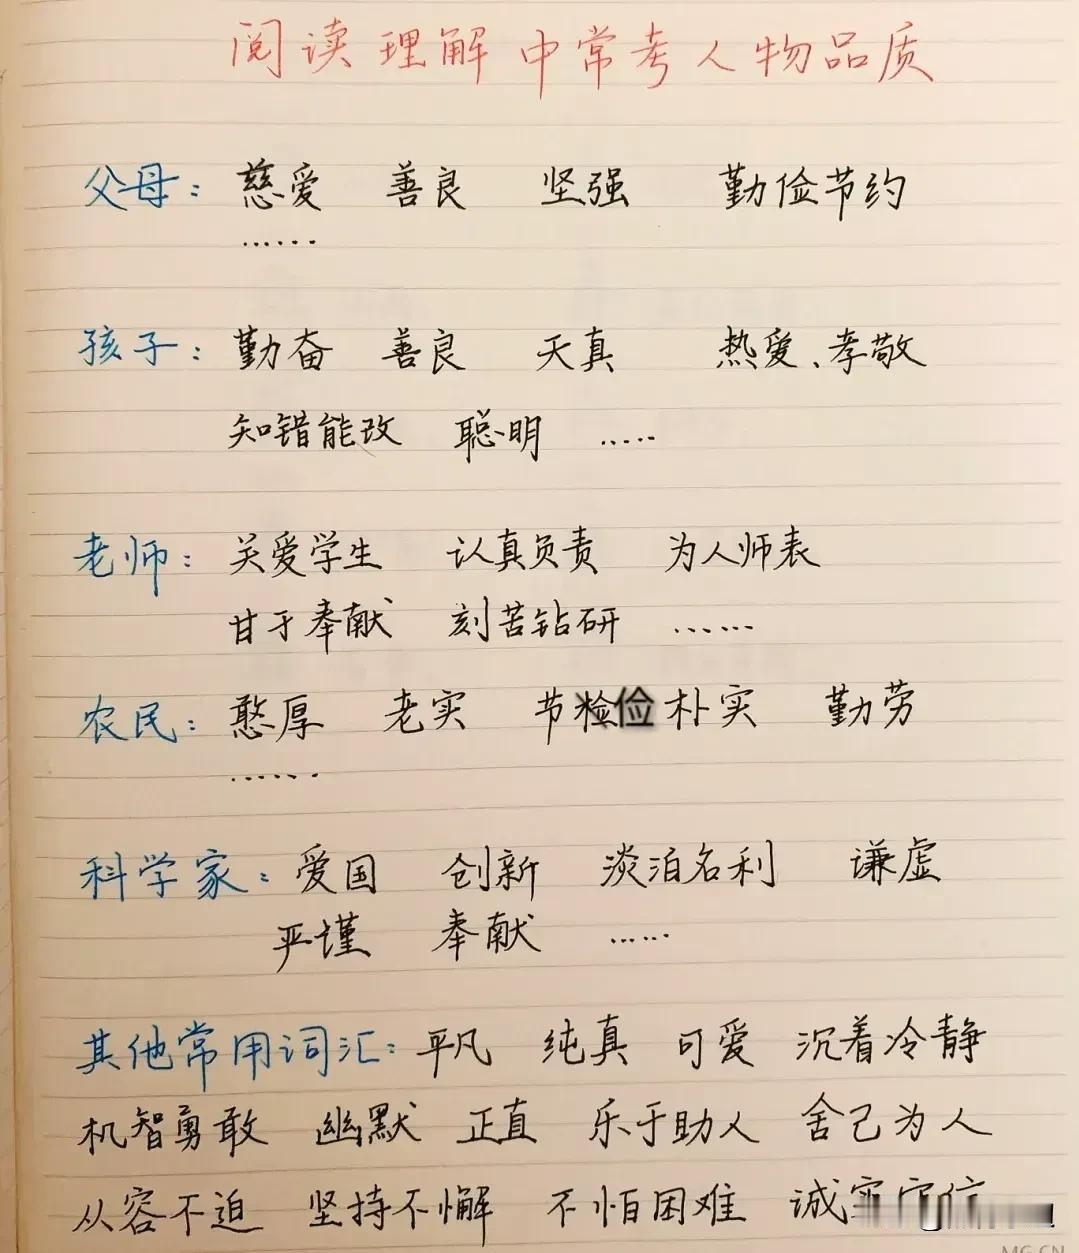 阅读理解中常考人物品质
父母：慈爱 善良 坚强 勤俭节约
……
孩子：勤奋 善良 天真 热爱、孝敬
知错能改 聪明 ……
老师：关爱学生 认真负责 为人师表
甘于奉献 刻苦钻研 ……
农民：憨厚 老实 节俭 朴实 勤劳
……
科学家：爱国 创新 淡泊名利 谦虚
严谨 奉献 ……
其他常用词汇：平凡 纯真 可爱 沉着冷静
机智勇敢 幽默 正直 乐于助人 舍己为人
从容不迫 坚持不懈 不怕困难 诚实守信